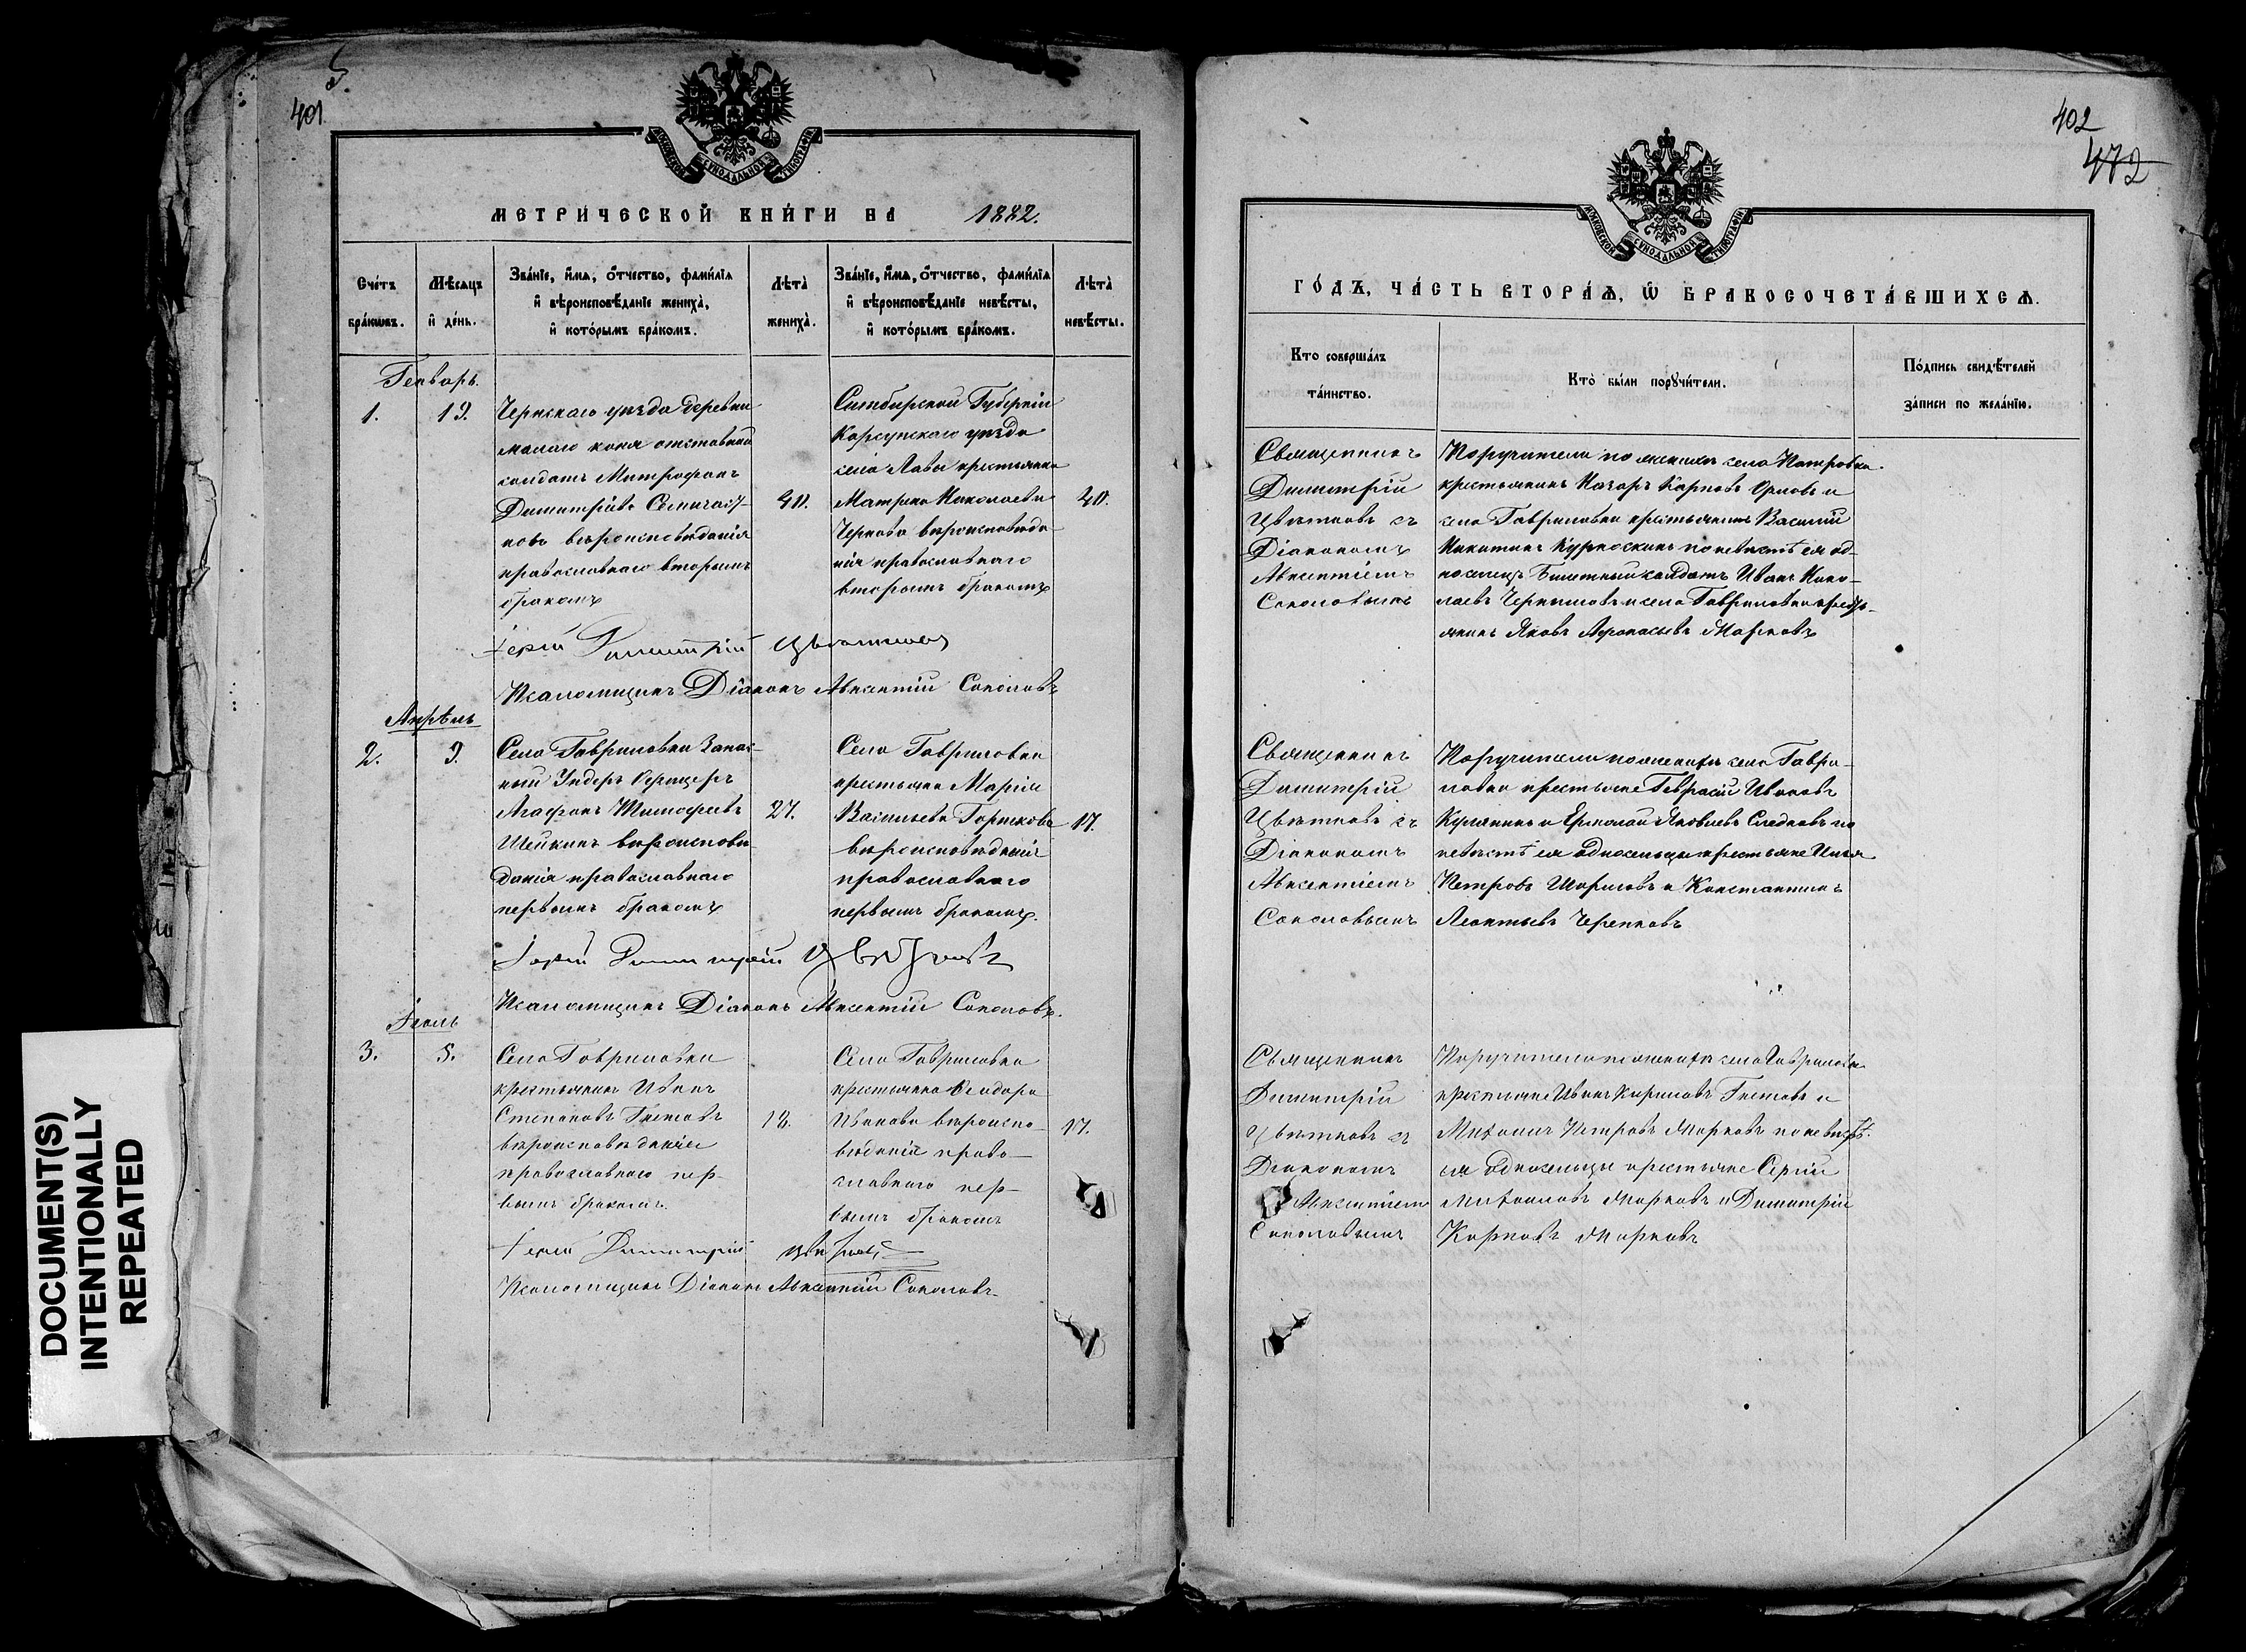 DOCUMENT(S)
INTENTIONALLY
REPEATED
401
МОСКОВСКОЙ СУНОДАЛЬНОЙ ТИПОГРАФІИ
МЕТРИ́ЧЕСКОЙ КНИ́ГИ НА 1882.
Сче́тъ бра́кѡвъ.
Мѣ́сяцъ и҆ де́нь.
Зва́нїе, и҆́мѧ, ѻ҆́тчество, фами́лїѧ
и҆ вѣроисповѣ́данїе жениха̀,
и҆ кото́рымъ бра́комъ.
Лѣта̀ жениха̀.
Зва́нїе, и҆́мѧ, ѻ҆́тчество, фами́лїѧ
и҆ вѣроисповѣ́данїе невѣ́сты,
и҆ кото́рымъ бра́комъ.
Лѣта̀ невѣ́сты.
Генварь.
1.
19.
уѣзда деревни
малаго коня отставной
солдатъ Митрофанъ
Димитріевъ
новъ вѣроисповѣданія
православнаго вторымъ
бракомъ
40.
Симбирской Губерніи
Карсунскаго уѣзда
села Лавы крестьянка
Матрона Николаева
Чернова вѣроисповѣда
нія православнаго
вторымъ бракомъ
40.
Іерей Димитрій Цвѣтковъ
Псаломщикъ Діаконъ Авксентій Соколовъ
Апрѣль
2.
9.
Села Гавриловки Запас-
ный Ундеръ Офицеръ
Агафонъ Тимофеевъ
Шейкинъ вѣроисповѣ-
данія православнаго
первымъ бракомъ
27.
Села Гавриловки
крестьянка Марія
Васильева Горшкова
вѣроисповѣданія
православнаго
первымъ бракомъ.
17.
Іерей Димитрій Цвѣтковъ
Псаломщикъ Діаконъ Авксентій Соколовъ.
Іюль
3.
5.
Села Гавриловки
крестьянинъ Иванъ
Степановъ Гнетовъ
вѣроисповѣданія
православнаго пер-
вымъ бракомъ.
18.
Села Гавриловки
крестьянка Ѳеодора
Иванова вѣроиспо-
вѣданія право-
славнаго пер-
вымъ бракомъ
17.
Іерей Димитрій Цвѣтковъ
Псаломщикъ Діаконъ Авксентій Соколовъ
402
472
МОСКОВСКОЙ СУНОДАЛЬНОЙ ТИПОГРАФІИ
ГО́ДЪ, ЧА́СТЬ ВТОРА́Ѧ, Ѽ БРАКОСОЧЕТА́ВШИХСѦ.
Кто̀ соверша́лъ та́инство.
Кто̀ бы́ли порꙋчи́тели.
По́дпись свидѣ́телей за́писи по жела́нїю.
Священникъ
Димитрій
Цвѣтковъ съ
Діакономъ
Авксентіемъ
Соколовымъ
Поручители по женихѣ села Петровки
крестьянинъ Назаръ Карповъ Орловъ и
села Гавриловки крестьянинъ Василій
Никитинъ Курноскинъ по невѣстѣ ея од-
носелецъ Билетный солдатъ Иванъ Нико-
лаевъ Чернышовъ и села Гавриловки кресть-
янинъ Яковъ Афанасьевъ Марковъ
Священникъ
Димитрій
Цвѣтковъ съ
Діакономъ
Авксентіемъ
Соколовымъ
Поручители по женихѣ села Гаври-
ловки крестьяне Герасій Ивановъ
и Ермолай Яковлевъ Следковъ по
невѣстѣ ея односельцы крестьяне Илья
Петровъ и Константинъ
Леонтьевъ Черенковъ
Священникъ
Димитрій
Цвѣтковъ съ
Діакономъ
Авксентіемъ
Соколовымъ
Поручители по женихѣ села Гавриловки
крестьяне Иванъ Кириловъ Гнетовъ и
Михаилъ Петровъ Марковъ по невѣстѣ.
ея односельцы крестьяне Сергій
Михаиловъ Марковъ и Димитрій
Карповъ Марковъ